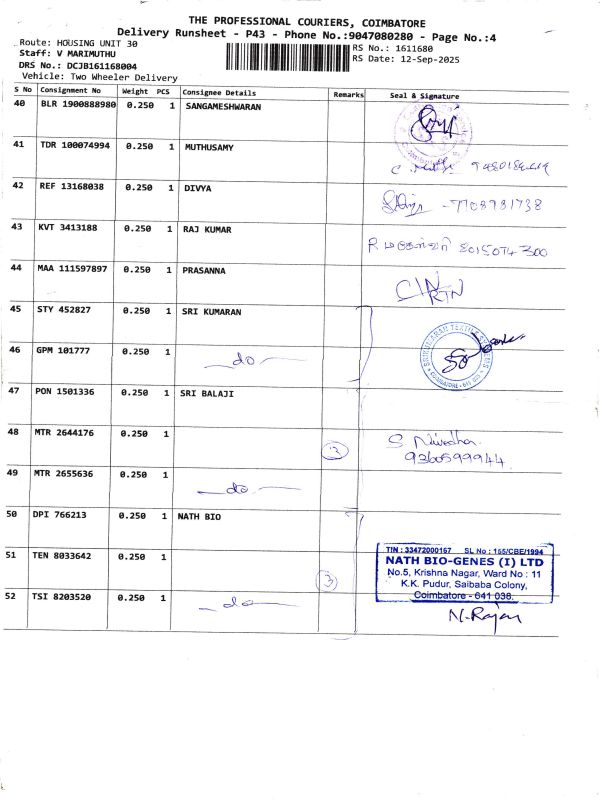 THE PROFESSIONAL COURIERS, COIMBATORE
Delivery Runsheet - P43 - Phone No.:9047080280 - Page No.:4
Route: HOUSING UNIT 30
RS No.: 1611680
Staff: V MARIMUTHU
RS Date: 12-Sep-2025
DRS No.: DCJB161168004
Vehicle: Two Wheeler Delivery
S No Consignment No Weight PCS Consignee Details Remarks Seal & Signature
40 BLR 1900888980 0.250 1 SANGAMESHWARAN
41 TDR 100074994 0.250 1 MUTHUSAMY
42 REF 13168038 0.250 1 DIVYA
7708781738
43 KVT 3413188 0.250 1 RAJ KUMAR
8015074300
44 MAA 111597897 0.250 1 PRASANNA
45 STY 452827 0.250 1 SRI KUMARAN
46 GPM 101777 0.250 1
do
47 PON 1501336 0.250 1 SRI BALAJI
48 MTR 2644176 0.250 1
3
S. Nivedha
9360599944
49 MTR 2655636 0.250 1
do
50 DPI 766213 0.250 1 NATH BIO
51 TEN 8033642 0.250 1
3
TIN : 33472000167 SL No : 155/CBE/1994
NATH BIO-GENES (I) LTD
No.5, Krishna Nagar, Ward No : 11
K.K. Pudur, Saibaba Colony,
Coimbatore - 641 038.
52 TSI 8203520 0.250 1
do
N. Rajan